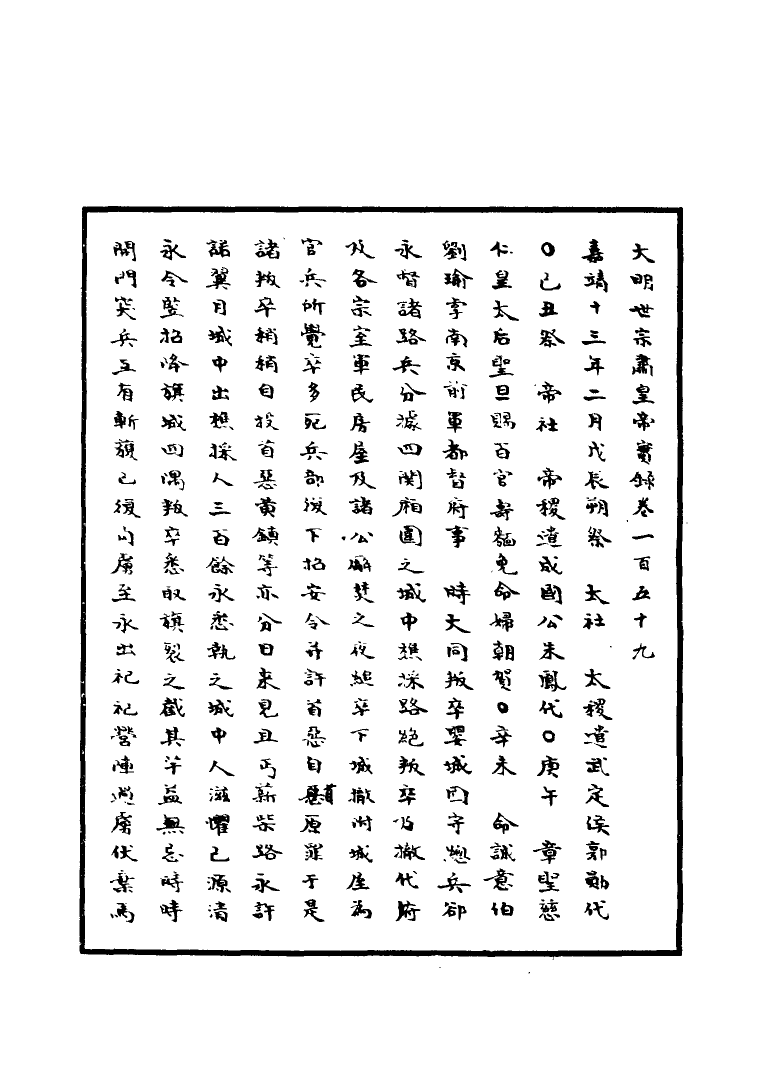 大明世宗肅皇帝實錄卷一百五十九
嘉靖十三年二月戊辰朔祭　太社　太稷遣武定侯郭勛代
○己丑祭　帝社　帝稷遣成國公朱鳳代○庚午　章聖慈
仁皇太后聖旦賜百官壽麵免命婦朝賀○辛未　命誠意伯
劉瑜掌南京前軍都督府事　時大同叛卒嬰城固守總兵郤
永督諸路兵分據四関廂圍之城中樵採路絕叛卒乃撤代府
及各宗室軍民房屋及諸公廨焚之夜縋卒下城撤附城屋為
官兵所覺卒多死兵部復下招安令并許首惡自首原罪于是
諸叛卒稍稍自投首惡黃鎮等亦分日來見且丐薪柴路永許
諾翼日城中出樵採人三百餘永悉執之城中人滋懼已源清
永令豎招降旗城四隅叛卒悉取旗裂之截其竿益無忌時時
開門突兵互有斬獲已復勾虜至永出祀祀營陣遇虜伏棄馬